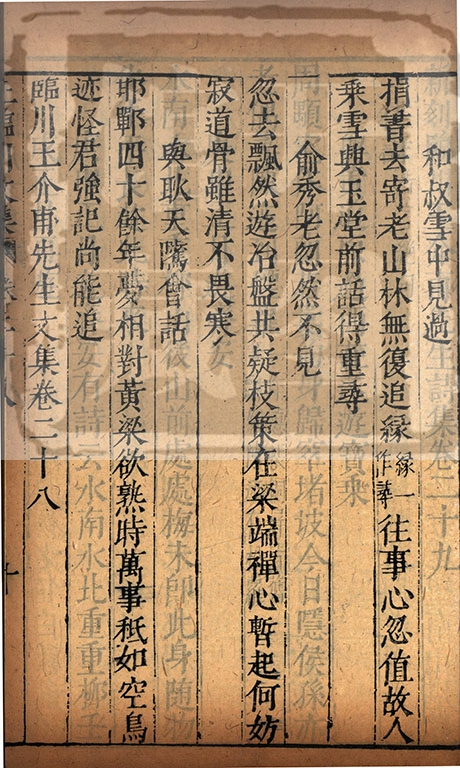 和叔雪中見過
捐書去寄老山林無復追緣緣一作尋往事心忽值故人
乘雪興玉堂前話得重尋
俞秀老忽然不見
忽去飄然遊冶盤共疑枝策在梁端禪心暫起何妨
寂道骨雖清不畏寒
與耿天隲會話
邯鄲四十餘年夢相對黃粱欲熟時萬事秪如空鳥
迹怪君強記尚能追
臨川王介甫先生文集卷二十八